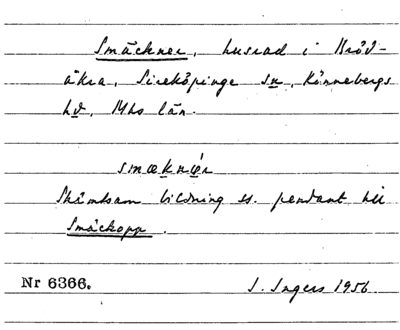 Smäckner, husrad i Kröd-
åkra, Sireköpinge sn, Rönnebergs
hd, Mhs län.
smæknęr
Skämtsam bildning ss. pendant till
Smäckopp.
Nr 6366.
I. Ingers 1956